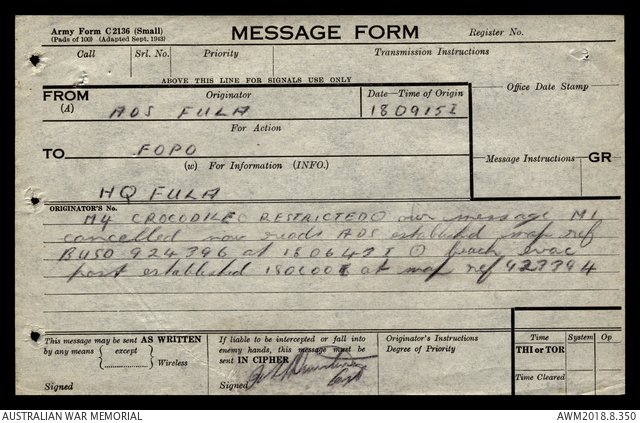 Army Form C 2136 (Small)
(Pads of 100) (Adapted Sept. 1943)
MESSAGE FORM
Register No.
Call Srl. No. Priority Transmission Instructions
ABOVE THIS LINE FOR SIGNALS USE ONLY
Office Date Stamp
FROM
(A)
Originator
ADS FULA
Date—Time of Origin
180915I
For Action
TO
FOPO
(w) For Information (INFO.)
HQ FULA
Message Instructions GR
ORIGINATOR'S No.
M4 CROCODILE RESTRICTED our message M1
cancelled now reads ADS established map ref
924396 at I beach evac
post established at map ref
This message may be sent AS WRITTEN
by any means { except }
Wireless
Signed
If liable to be intercepted or fall into
enemy hands, this message must be
sent IN CIPHER
Signed
Capt
Originator's Instructions
Degree of Priority
Time System Op
THI or TOR
Time Cleared
AUSTRALIAN WAR MEMORIAL
AWM2018.8.350